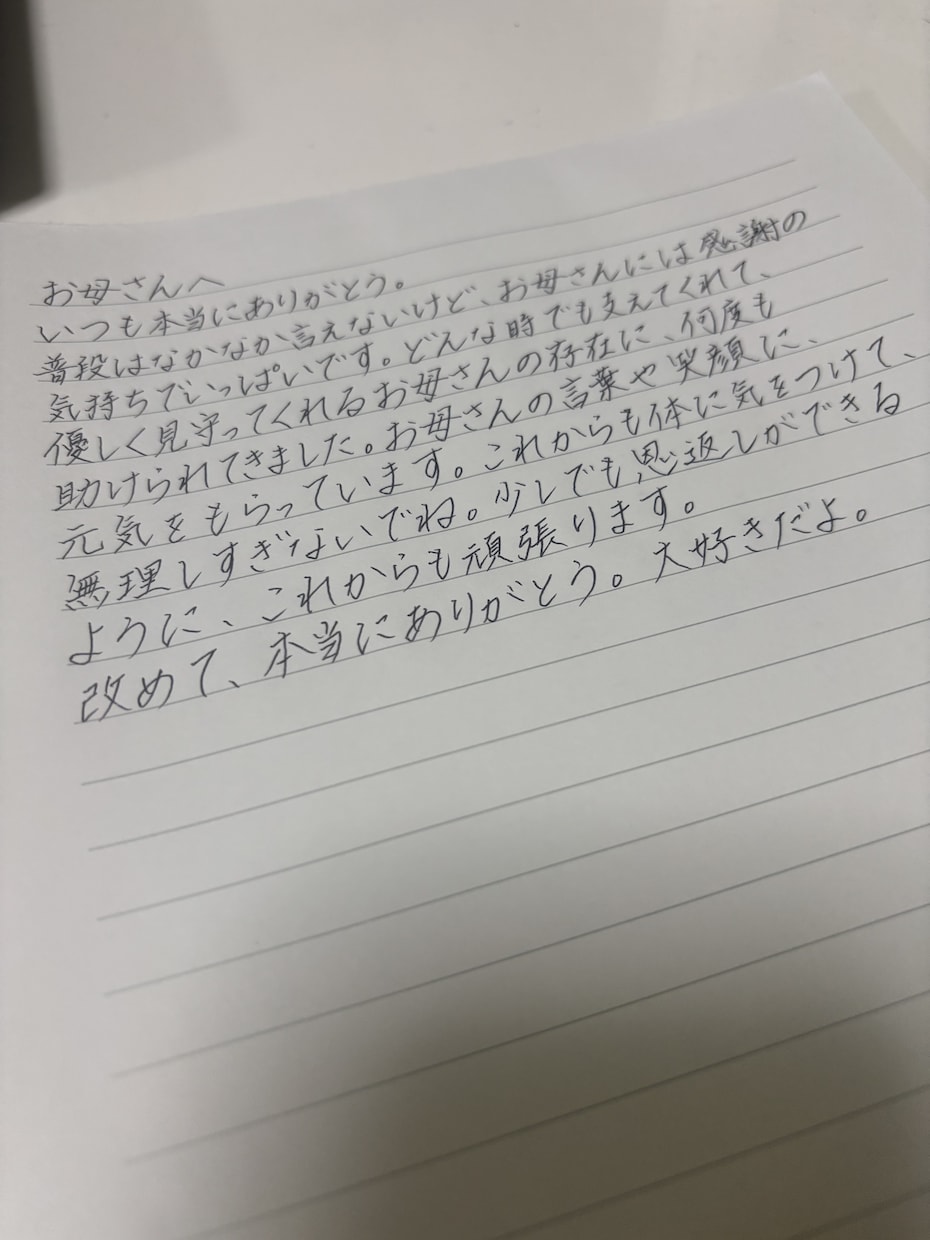 お母さんへ
いつも本当にありがとう。
普段はなかなか言えないけど、お母さんには感謝の
気持ちでいっぱいです。どんな時でも支えてくれて、
優しく見守ってくれるお母さんの存在に、何度も
助けられてきました。お母さんの言葉や笑顔に、
元気をもらっています。これからも体に気をつけて、
無理しすぎないでね。少しでも恩返しができる
ように、これからも頑張ります。
改めて、本当にありがとう。大好きだよ。